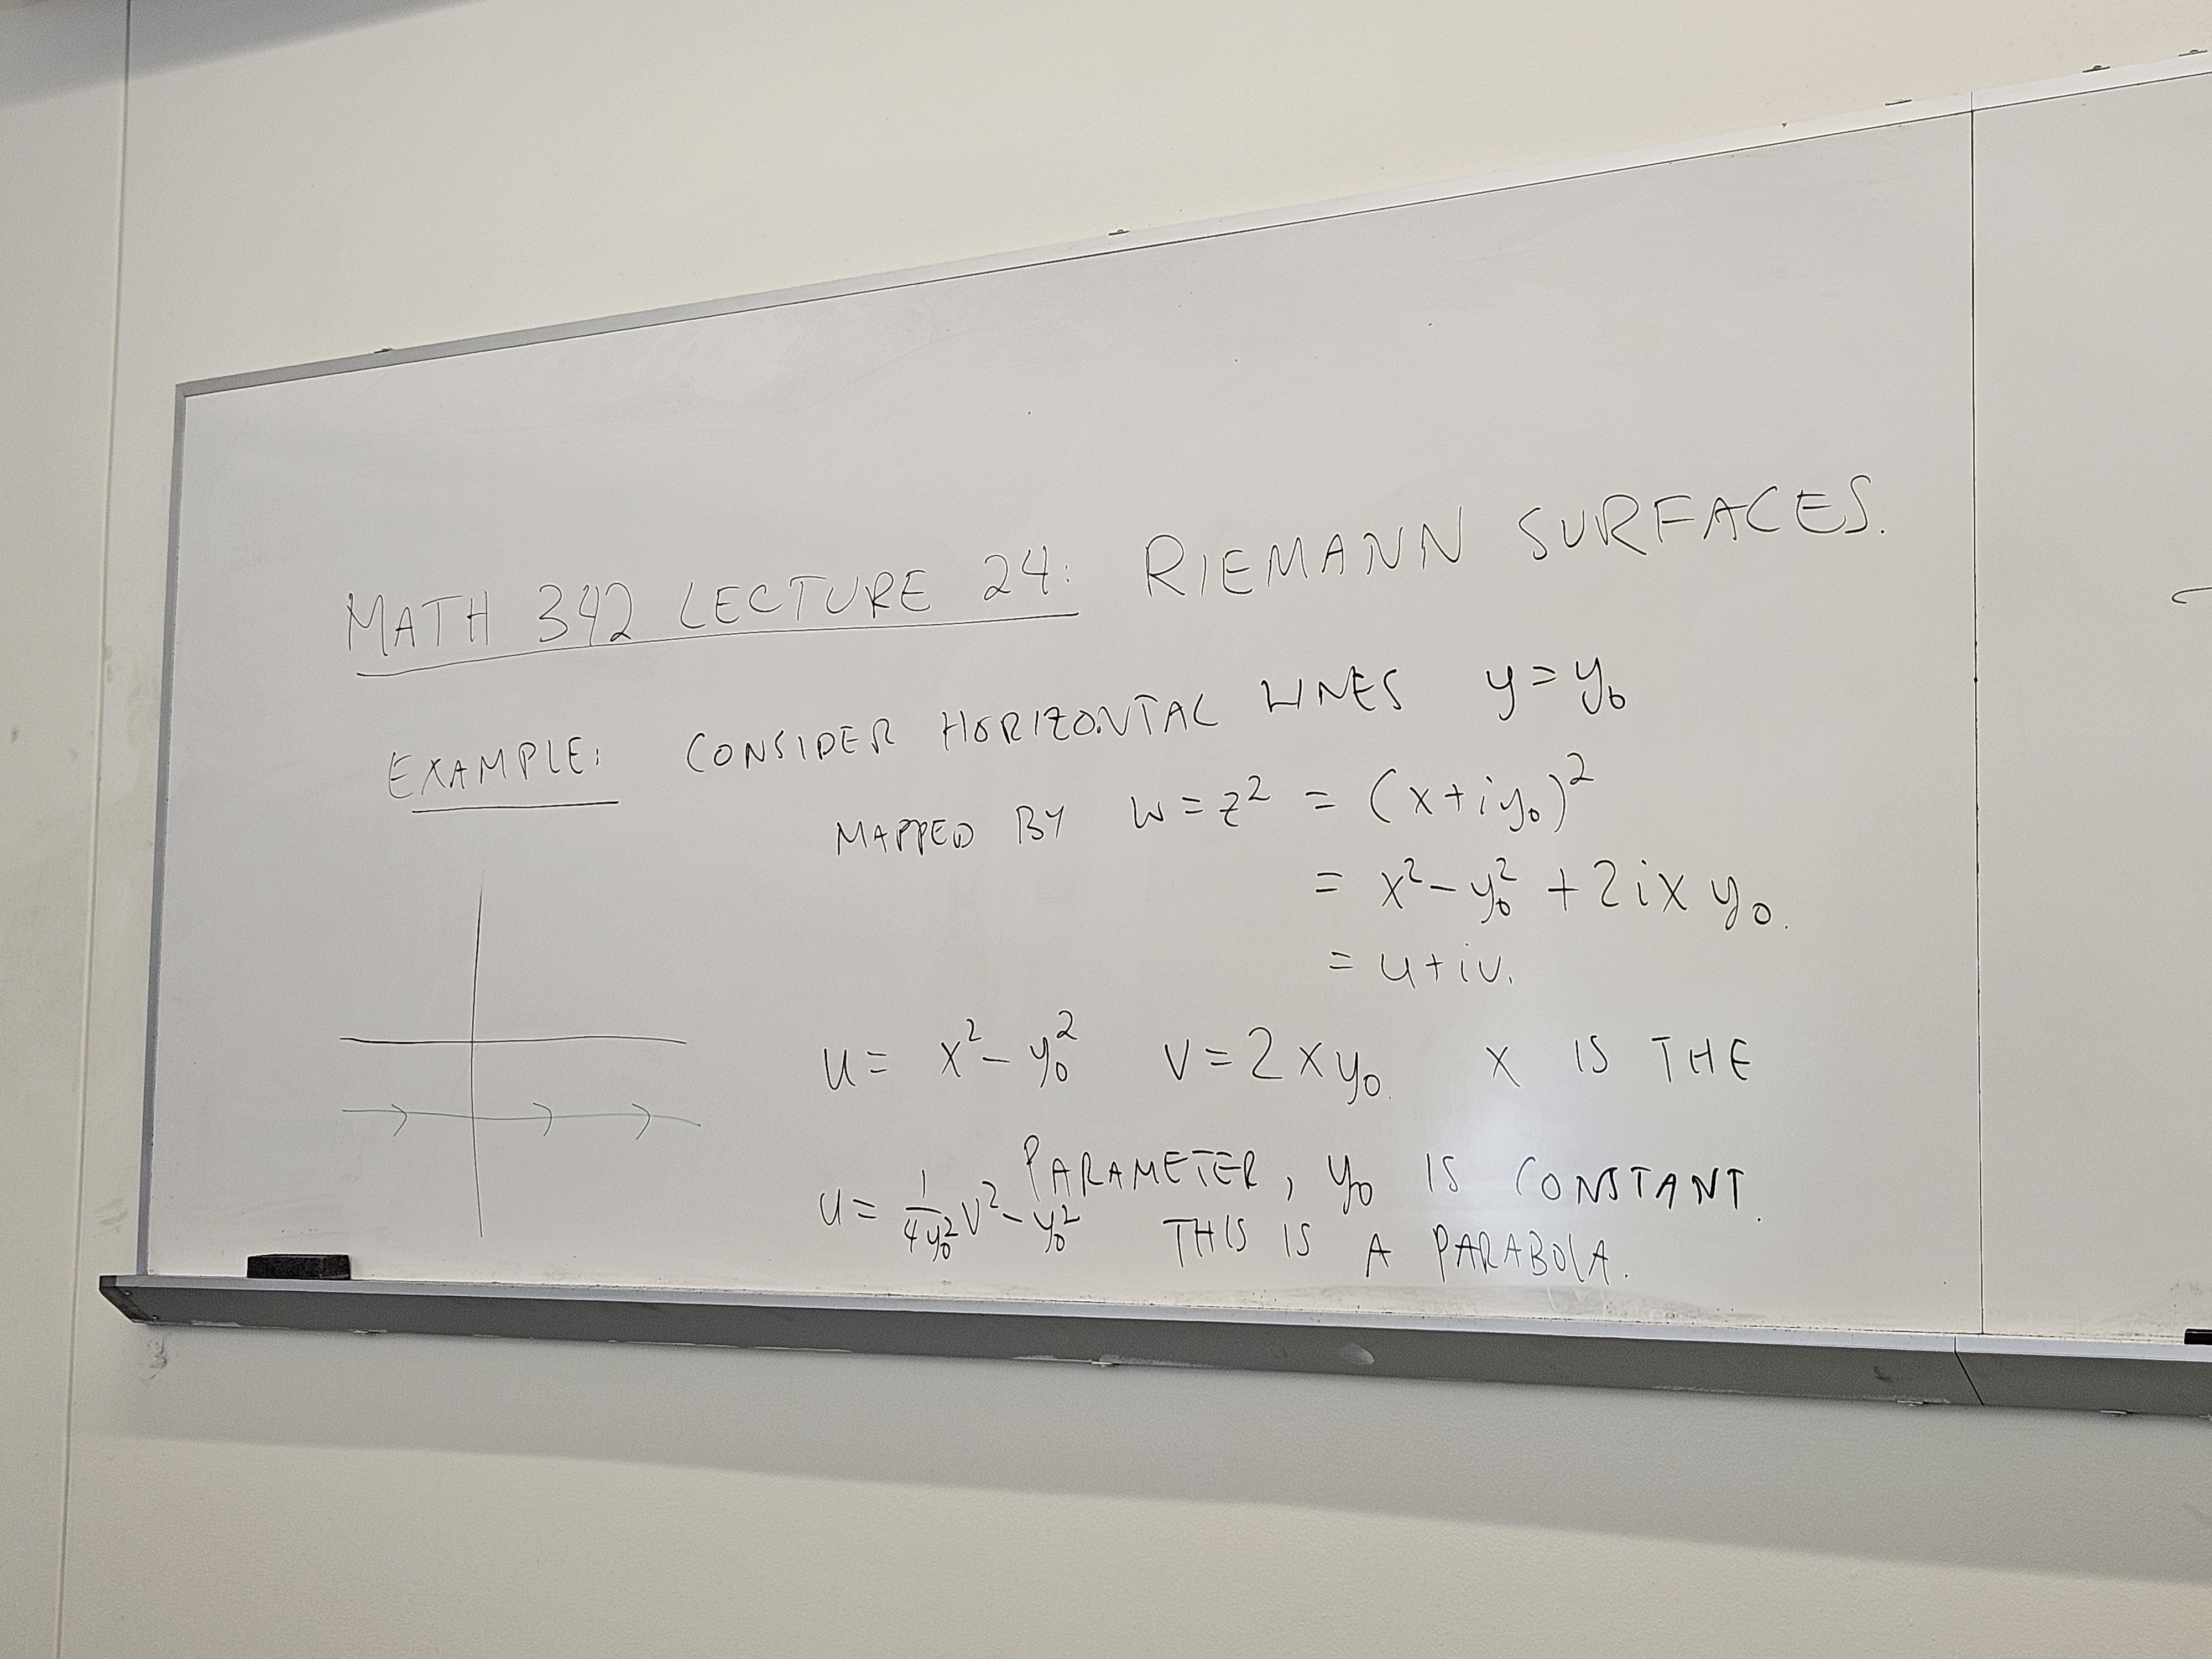 MATH 342 LECTURE 24: RIEMANN SURFACES.
EXAMPLE: CONSIDER HORIZONTAL LINES y = y₀
MAPPED BY w = z² = (x + iy₀)²
= x² − y₀² + 2ixy₀.
= u + iv.
u = x² − y₀² v = 2xy₀. x IS THE
PARAMETER, y₀ IS CONSTANT.
u = 1/(4y₀²) v² − y₀² THIS IS A PARABOLA.